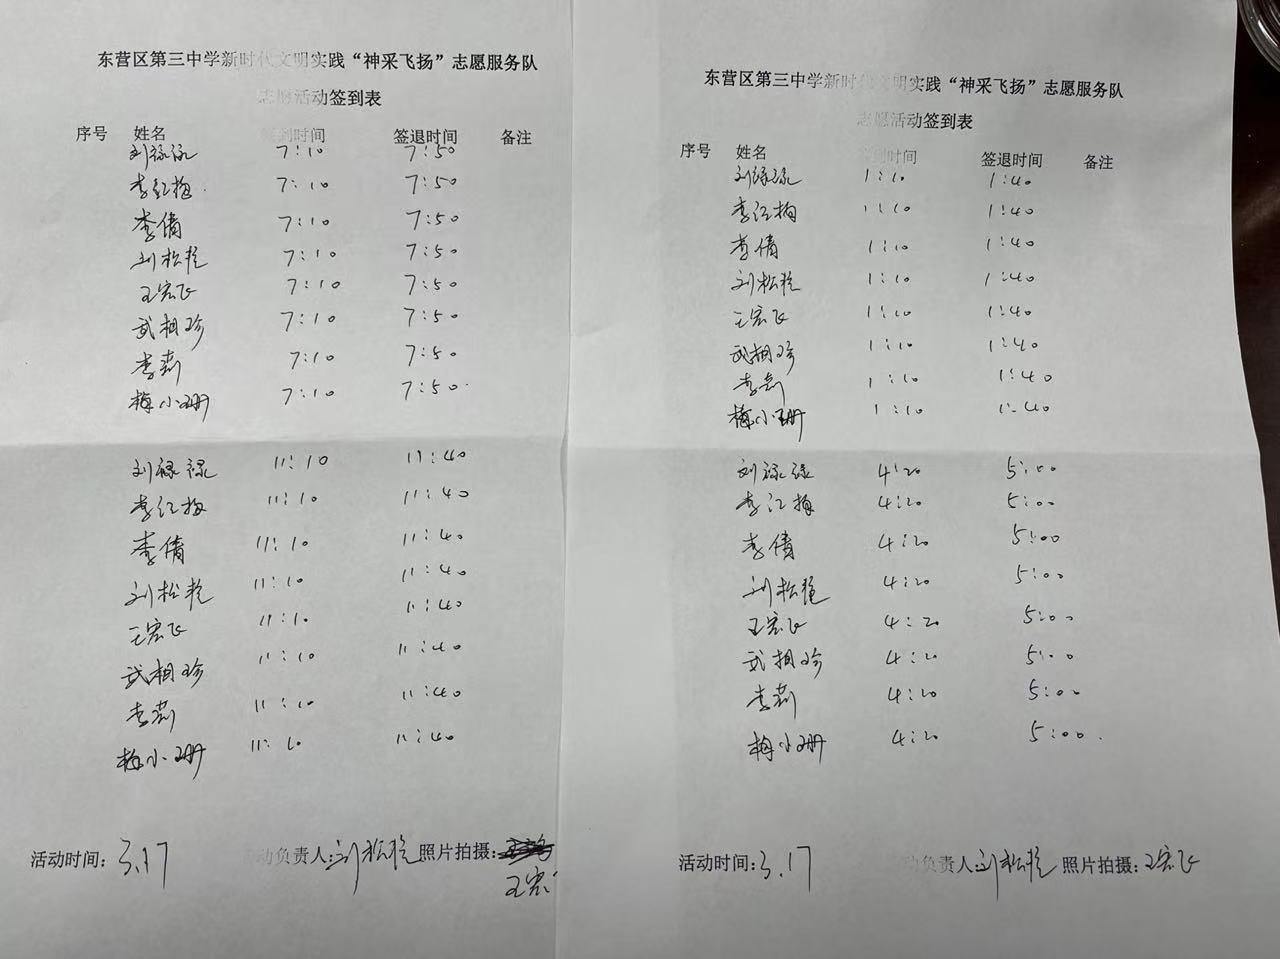 东营区第三中学新时代文明实践“神采飞扬”志愿服务队
志愿活动签到表
序号 姓名 签到时间 签退时间 备注
刘禄禄 7:10 7:50
李红梅 7:10 7:50
李倩 7:10 7:50
刘松艳 7:10 7:50
王宏飞 7:10 7:50
武相珍 7:10 7:50
李莉 7:10 7:50
梅小珊 7:10 7:50
刘禄禄 11:10 11:40
李红梅 11:10 11:40
李倩 11:10 11:40
刘松艳 11:10 11:40
王宏飞 11:10 11:40
武相珍 11:10 11:40
李莉 11:10 11:40
梅小珊 11:10 11:40
活动时间：3.17 活动负责人：刘松艳 照片拍摄：
王宏
东营区第三中学新时代文明实践“神采飞扬”志愿服务队
志愿活动签到表
序号 姓名 签到时间 签退时间 备注
刘禄禄 1:10 1:40
李红梅 1:10 1:40
李倩 1:10 1:40
刘松艳 1:10 1:40
王宏飞 1:10 1:40
武相珍 1:10 1:40
李莉 1:10 1:40
梅小珊 1:10 1:40
刘禄禄 4:20 5:00
李红梅 4:20 5:00
李倩 4:20 5:00
刘松艳 4:20 5:00
王宏飞 4:20 5:00
武相珍 4:20 5:00
李莉 4:20 5:00
梅小珊 4:20 5:00
活动时间：3.17 活动负责人：刘松艳 照片拍摄：王宏飞